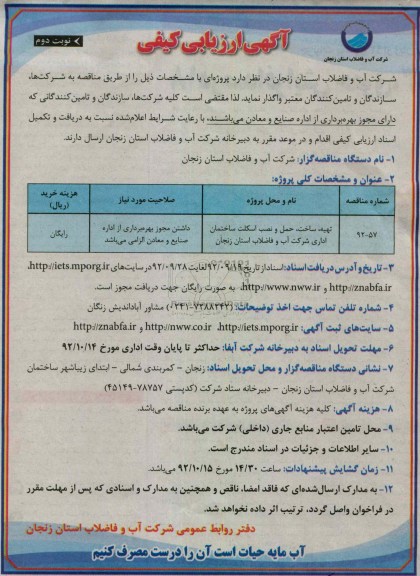 شرکت آب و فاضلاب استان زنجان
آگهی ارزیابی کیفی
نوبت دوم
شرکت آب و فاضلاب استان زنجان در نظر دارد پروژه‌ای با مشخصات ذیل را از طریق مناقصه به شرکت‌ها،
سازندگان و تامین‌کنندگان معتبر واگذار نماید. لذا مقتضی است کلیه شرکت‌ها، سازندگان و تامین‌کنندگانی که
دارای مجوز بهره‌برداری از اداره صنایع و معادن می‌باشند، با رعایت شرایط اعلام‌شده نسبت به دریافت و تکمیل
اسناد ارزیابی کیفی اقدام و در موعد مقرر به دبیرخانه شرکت آب و فاضلاب استان زنجان ارسال دارند.
۱- نام دستگاه مناقصه‌گزار: شرکت آب و فاضلاب استان زنجان
۲- عنوان و مشخصات کلی پروژه:
شماره مناقصه | نام و محل پروژه | صلاحیت مورد نیاز | هزینه خرید (ریال)
۹۲-۵۷ | تهیه، ساخت، حمل و نصب اسکلت ساختمان اداری شرکت آب و فاضلاب استان زنجان | داشتن مجوز بهره‌برداری از اداره صنایع و معادن الزامی می‌باشد | رایگان
۳- تاریخ و آدرس دریافت اسناد: اسناد از تاریخ ۹۲/۰۹/۱۹ لغایت ۹۲/۰۹/۲۸ در سایت‌های http://iets.mporg.ir،
http://znabfa.ir و http://www.nww.ir، به صورت رایگان جهت دریافت موجود است.
۴- شماره تلفن تماس جهت اخذ توضیحات: (۷۳۸۸۳۴۲-۰۲۴۱) مشاور آباداندیش زنگان
۵- سایت‌های ثبت آگهی: http://iets.mporg.ir، http://nww.co.ir و http://znabfa.ir
۶- مهلت تحویل اسناد به دبیرخانه شرکت آبفا: حداکثر تا پایان وقت اداری مورخ ۹۲/۱۰/۱۴
۷- نشانی دستگاه مناقصه‌گزار و محل تحویل اسناد: زنجان - کمربندی شمالی - ابتدای زیباشهر ساختمان
شرکت آب و فاضلاب استان زنجان - دبیرخانه ستاد شرکت (کدپستی ۷۸۷۵۷-۴۵۱۴۹)
۸- هزینه آگهی: کلیه هزینه آگهی‌های پروژه به عهده برنده مناقصه می‌باشد.
۹- محل تامین اعتبار منابع جاری (داخلی) شرکت می‌باشد.
۱۰- سایر اطلاعات و جزئیات در اسناد مندرج است.
۱۱- زمان گشایش پیشنهادات: ساعت ۱۴/۳۰ مورخ ۹۲/۱۰/۱۵ می‌باشد.
۱۲- به مدارک ارسال‌شده‌ای که فاقد امضا، ناقص و همچنین به مدارک و اسنادی که پس از مهلت مقرر
در فراخوان واصل گردد، ترتیب اثر داده نخواهد شد.
دفتر روابط عمومی شرکت آب و فاضلاب استان زنجان
آب مایه حیات است آن را درست مصرف کنیم